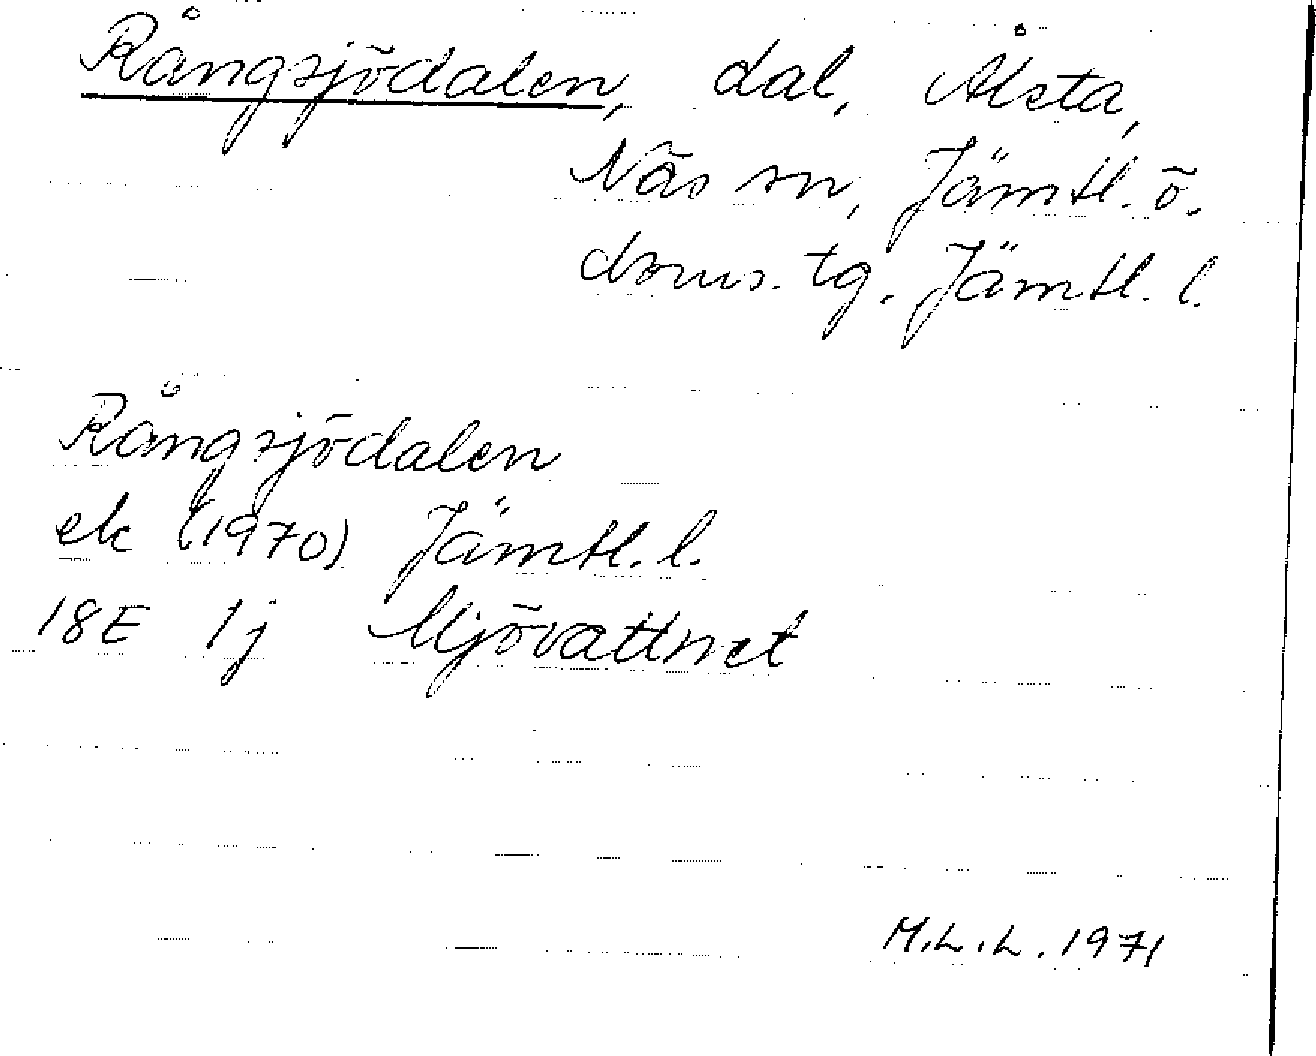 Rångsjödalen, dal, Ålsta,
Näs sn, Jämtl. ö.
doms. tg. Jämtl. l.
Rångsjödalen
ek (1970) Jämtl. l.
18E 1j Mjövattnet
M.L.L. 1971